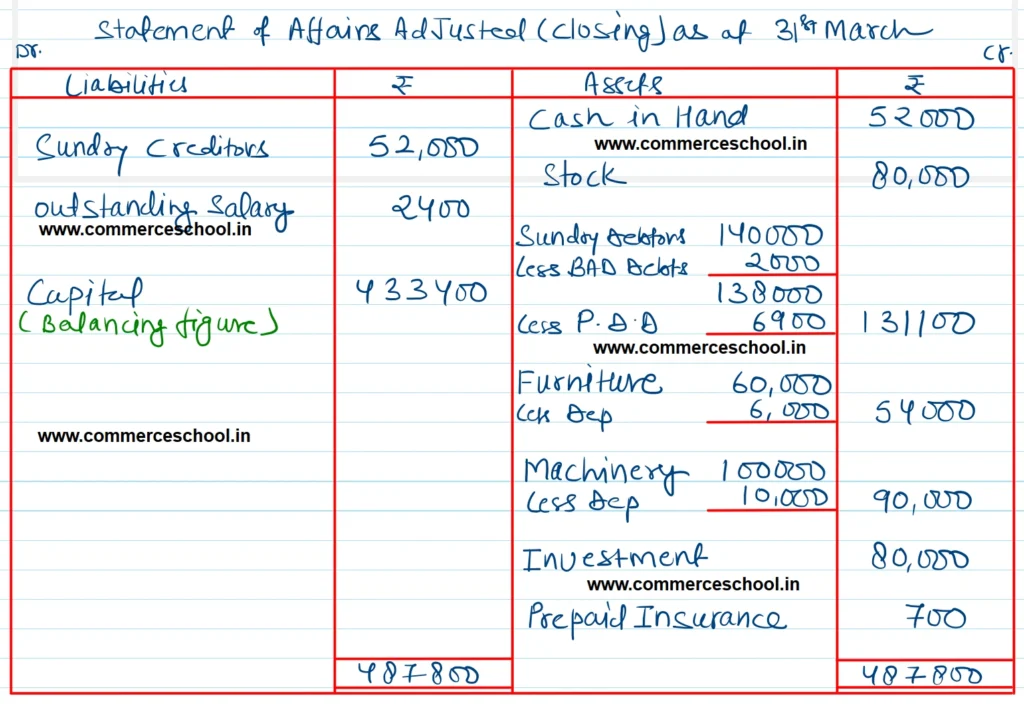 Statement of Affairs Adjusted (closing) as at 31st March
Dr.
Cr.
Liabilities ₹ Assets ₹
Cash in Hand 52000
www.commerceschool.in
Sundry Creditors 52,000
Stock 80,000
outstanding Salary 2400
www.commerceschool.in
Sundry Debtors 140000
Less BAD Debts 2000
Capital 433400
138000
(Balancing figure)
Less P.D.D 6900 131100
www.commerceschool.in
Furniture 60,000
Less Dep 6,000 54000
www.commerceschool.in
Machinery 100000
Less Dep 10,000 90,000
Investment 80,000
www.commerceschool.in
Prepaid Insurance 700
487800 487800